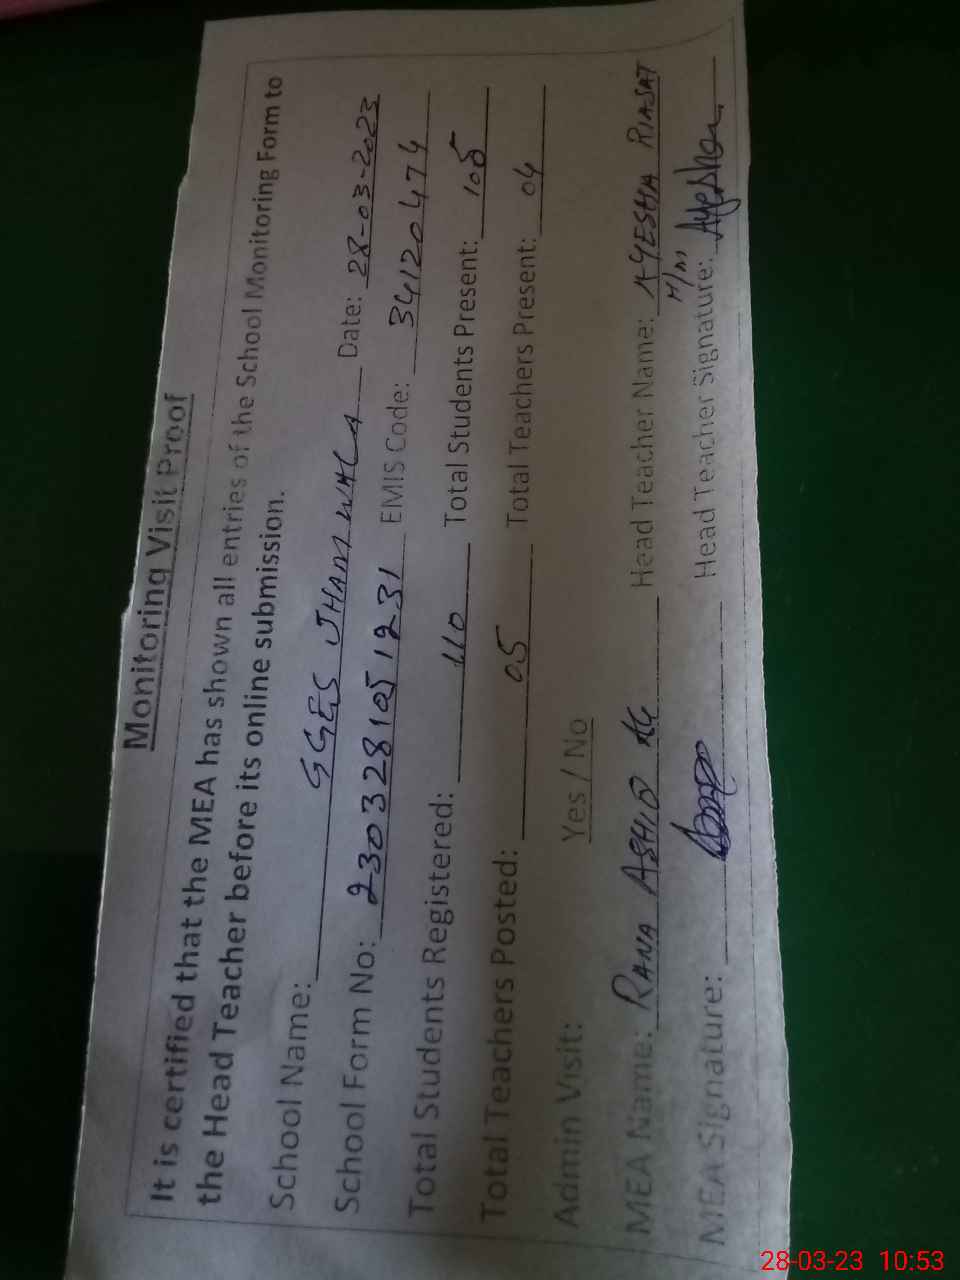 Monitoring Visit Proof
It is certified that the MEA has shown all entries of the School Monitoring Form to
the Head Teacher before its online submission.
School Name: GGES JHAMWALA Date: 28-03-2023
School Form No: 2303281051231 EMIS Code: 34120474
Total Students Registered: 110 Total Students Present: 105
Total Teachers Posted: 05 Total Teachers Present: 04
Admin Visit: Yes / No
MEA Name: RANA ASHIQ Head Teacher Name: AYESHA RIASAT
H/M
MEA Signature: Head Teacher Signature: Ayesha
28-03-23 10:53